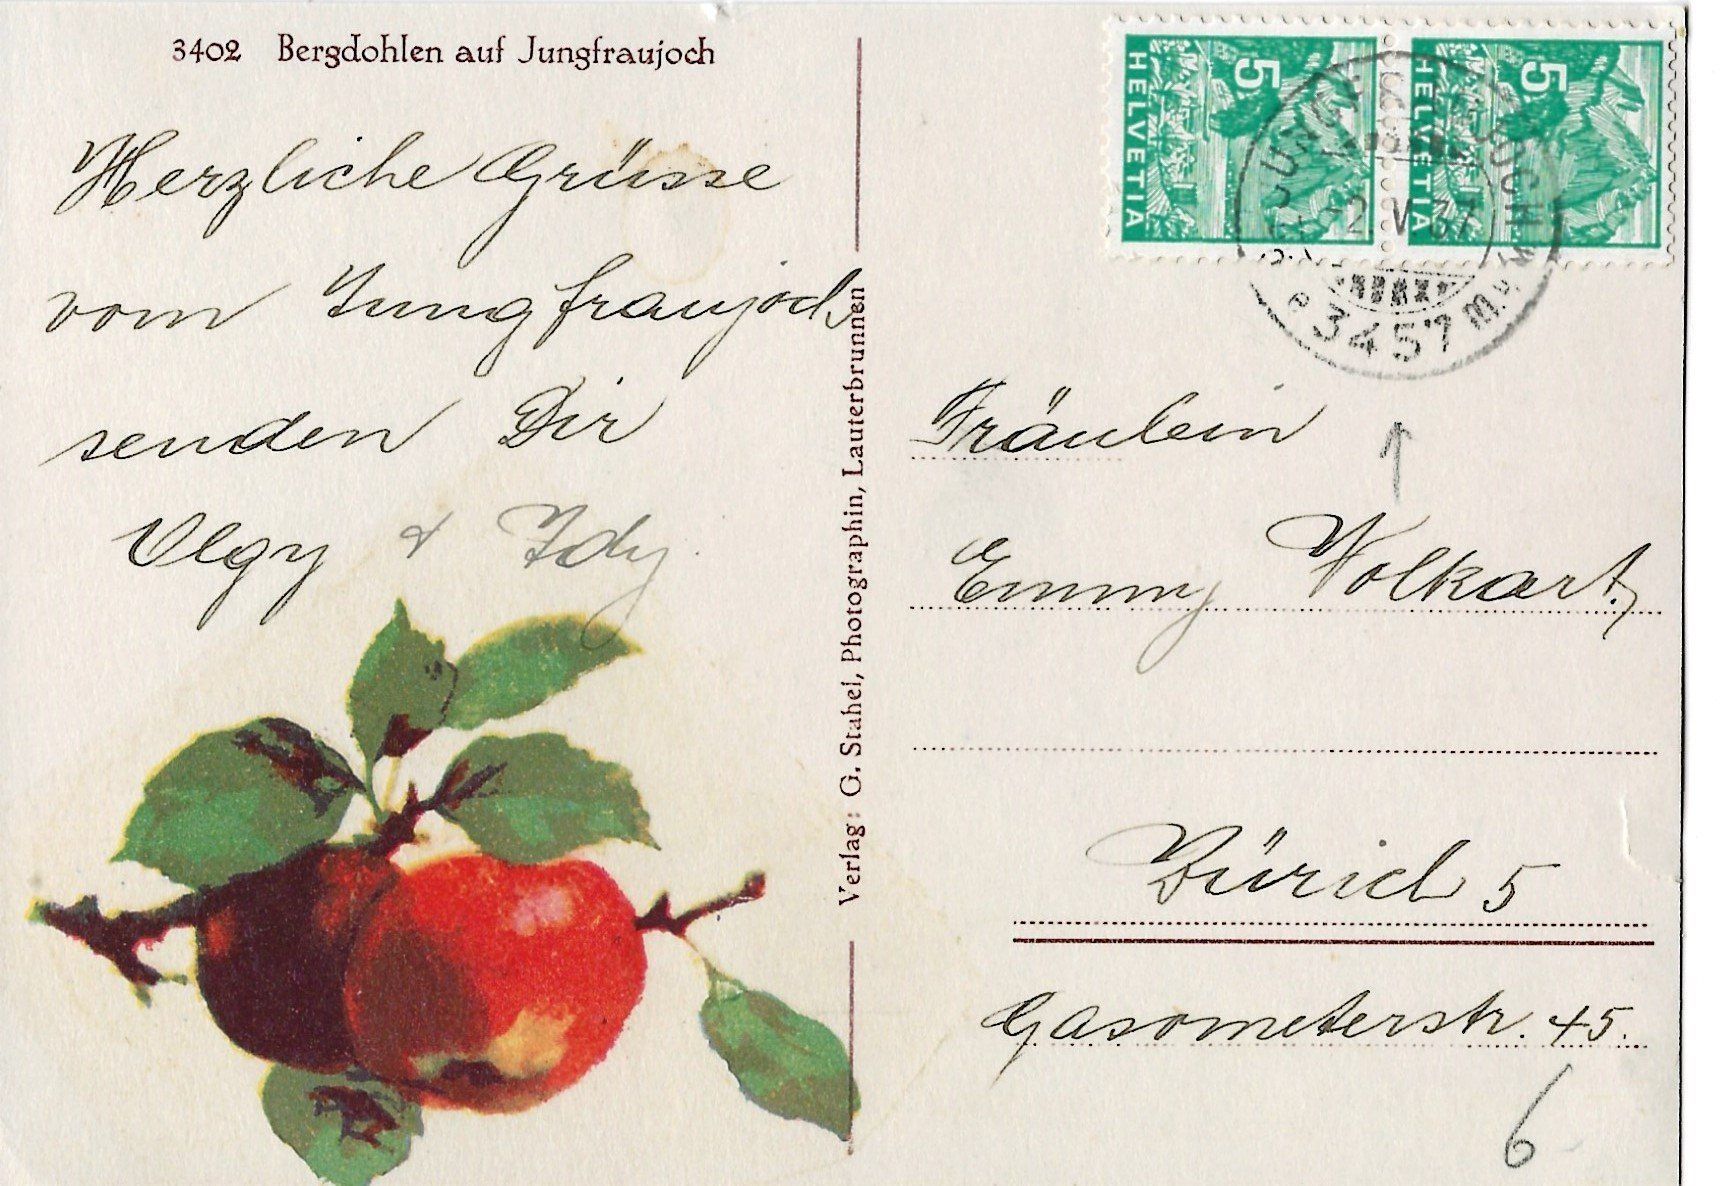 3402 Bergdohlen auf Jungfraujoch
Herzliche Grüsse
vom Jungfraujoch
senden Dir
Olgy & Idy.
Verlag: G. Stahel, Photographin, Lauterbrunnen
5
HELVETIA
5
HELVETIA
JUNGFRAUJOCH
12 V 37
3457 m
Fräulein
Emmy Volkart,
Zürich 5
Gasometerstr. 45.
6